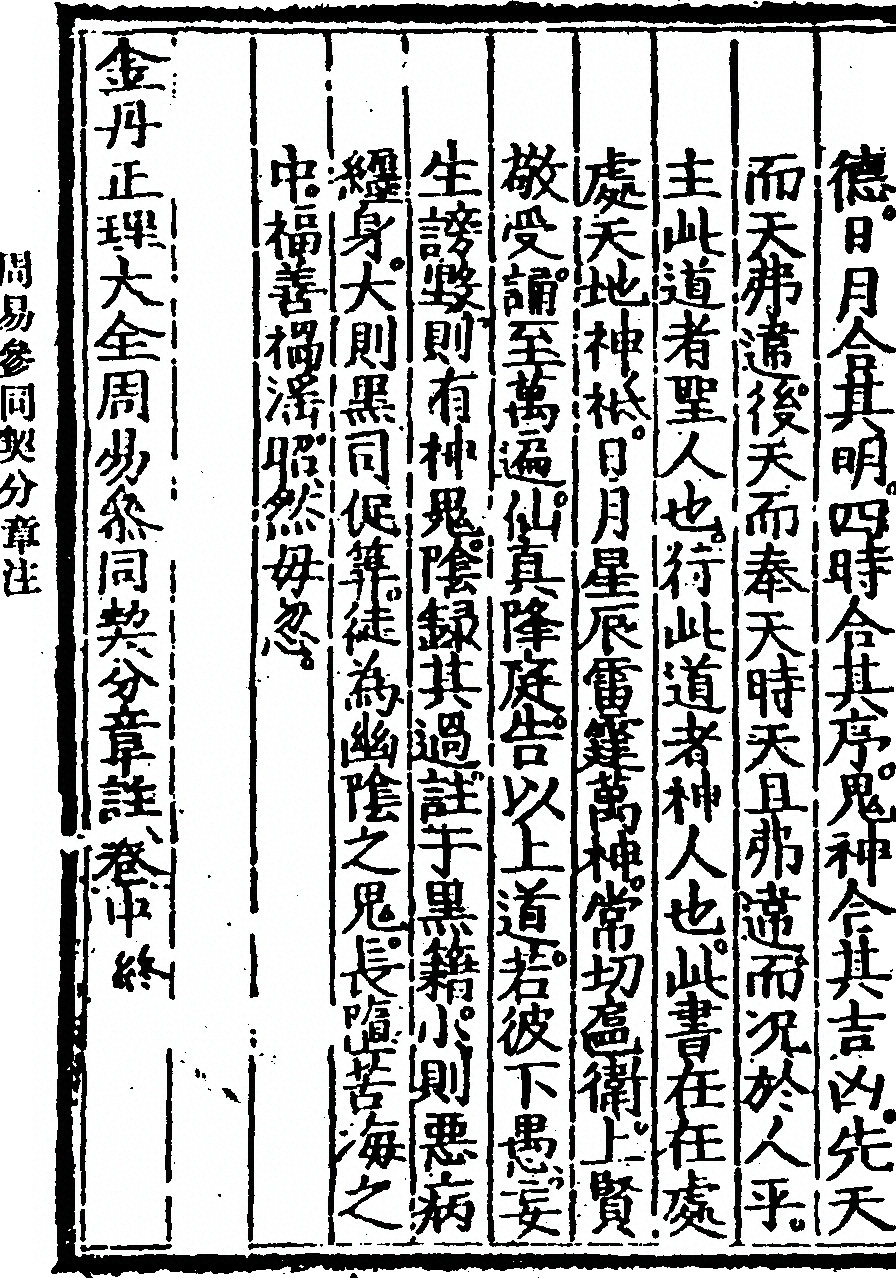 德。日月合其明。四時合其序。鬼神合其吉凶。先天
而天弗違。後天而奉天時。天且弗違。而况於人乎。
主此道者聖人也。行此道者神人也。此書在在處
處天地神祇。日月星辰雷霆萬神。常切區衛。上賢
敬受。誦至萬遍。仙真降庭。告以上道。若彼下愚。妄
生謗毀。則有神鬼。陰録其過。註于黑籍。小則惡病
纏身。大則黑司促筭。徒為幽陰之鬼。長墮苦海之
中。福善禍淫。昭然毋忽。
金丹正理大全周易參同契分章註卷中 終
周易參同契分章注